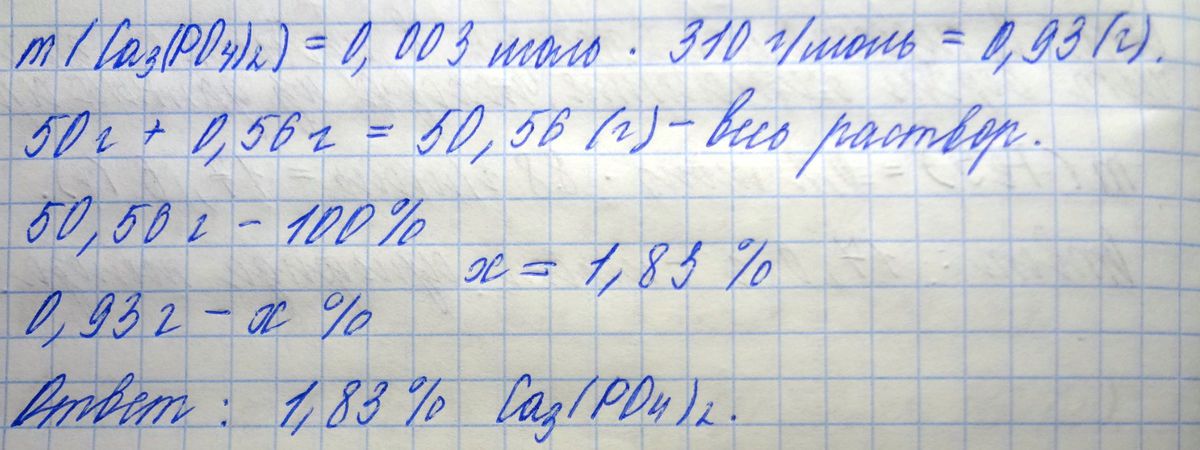 m(Ca₃(PO₄)₂) = 0,003 моль · 310 г/моль = 0,93 (г).
50 г + 0,56 г = 50,56 (г) – весь раствор.
50,56 г – 100 %
x = 1,83 %
0,93 г – x %
Ответ: 1,83 % Ca₃(PO₄)₂.